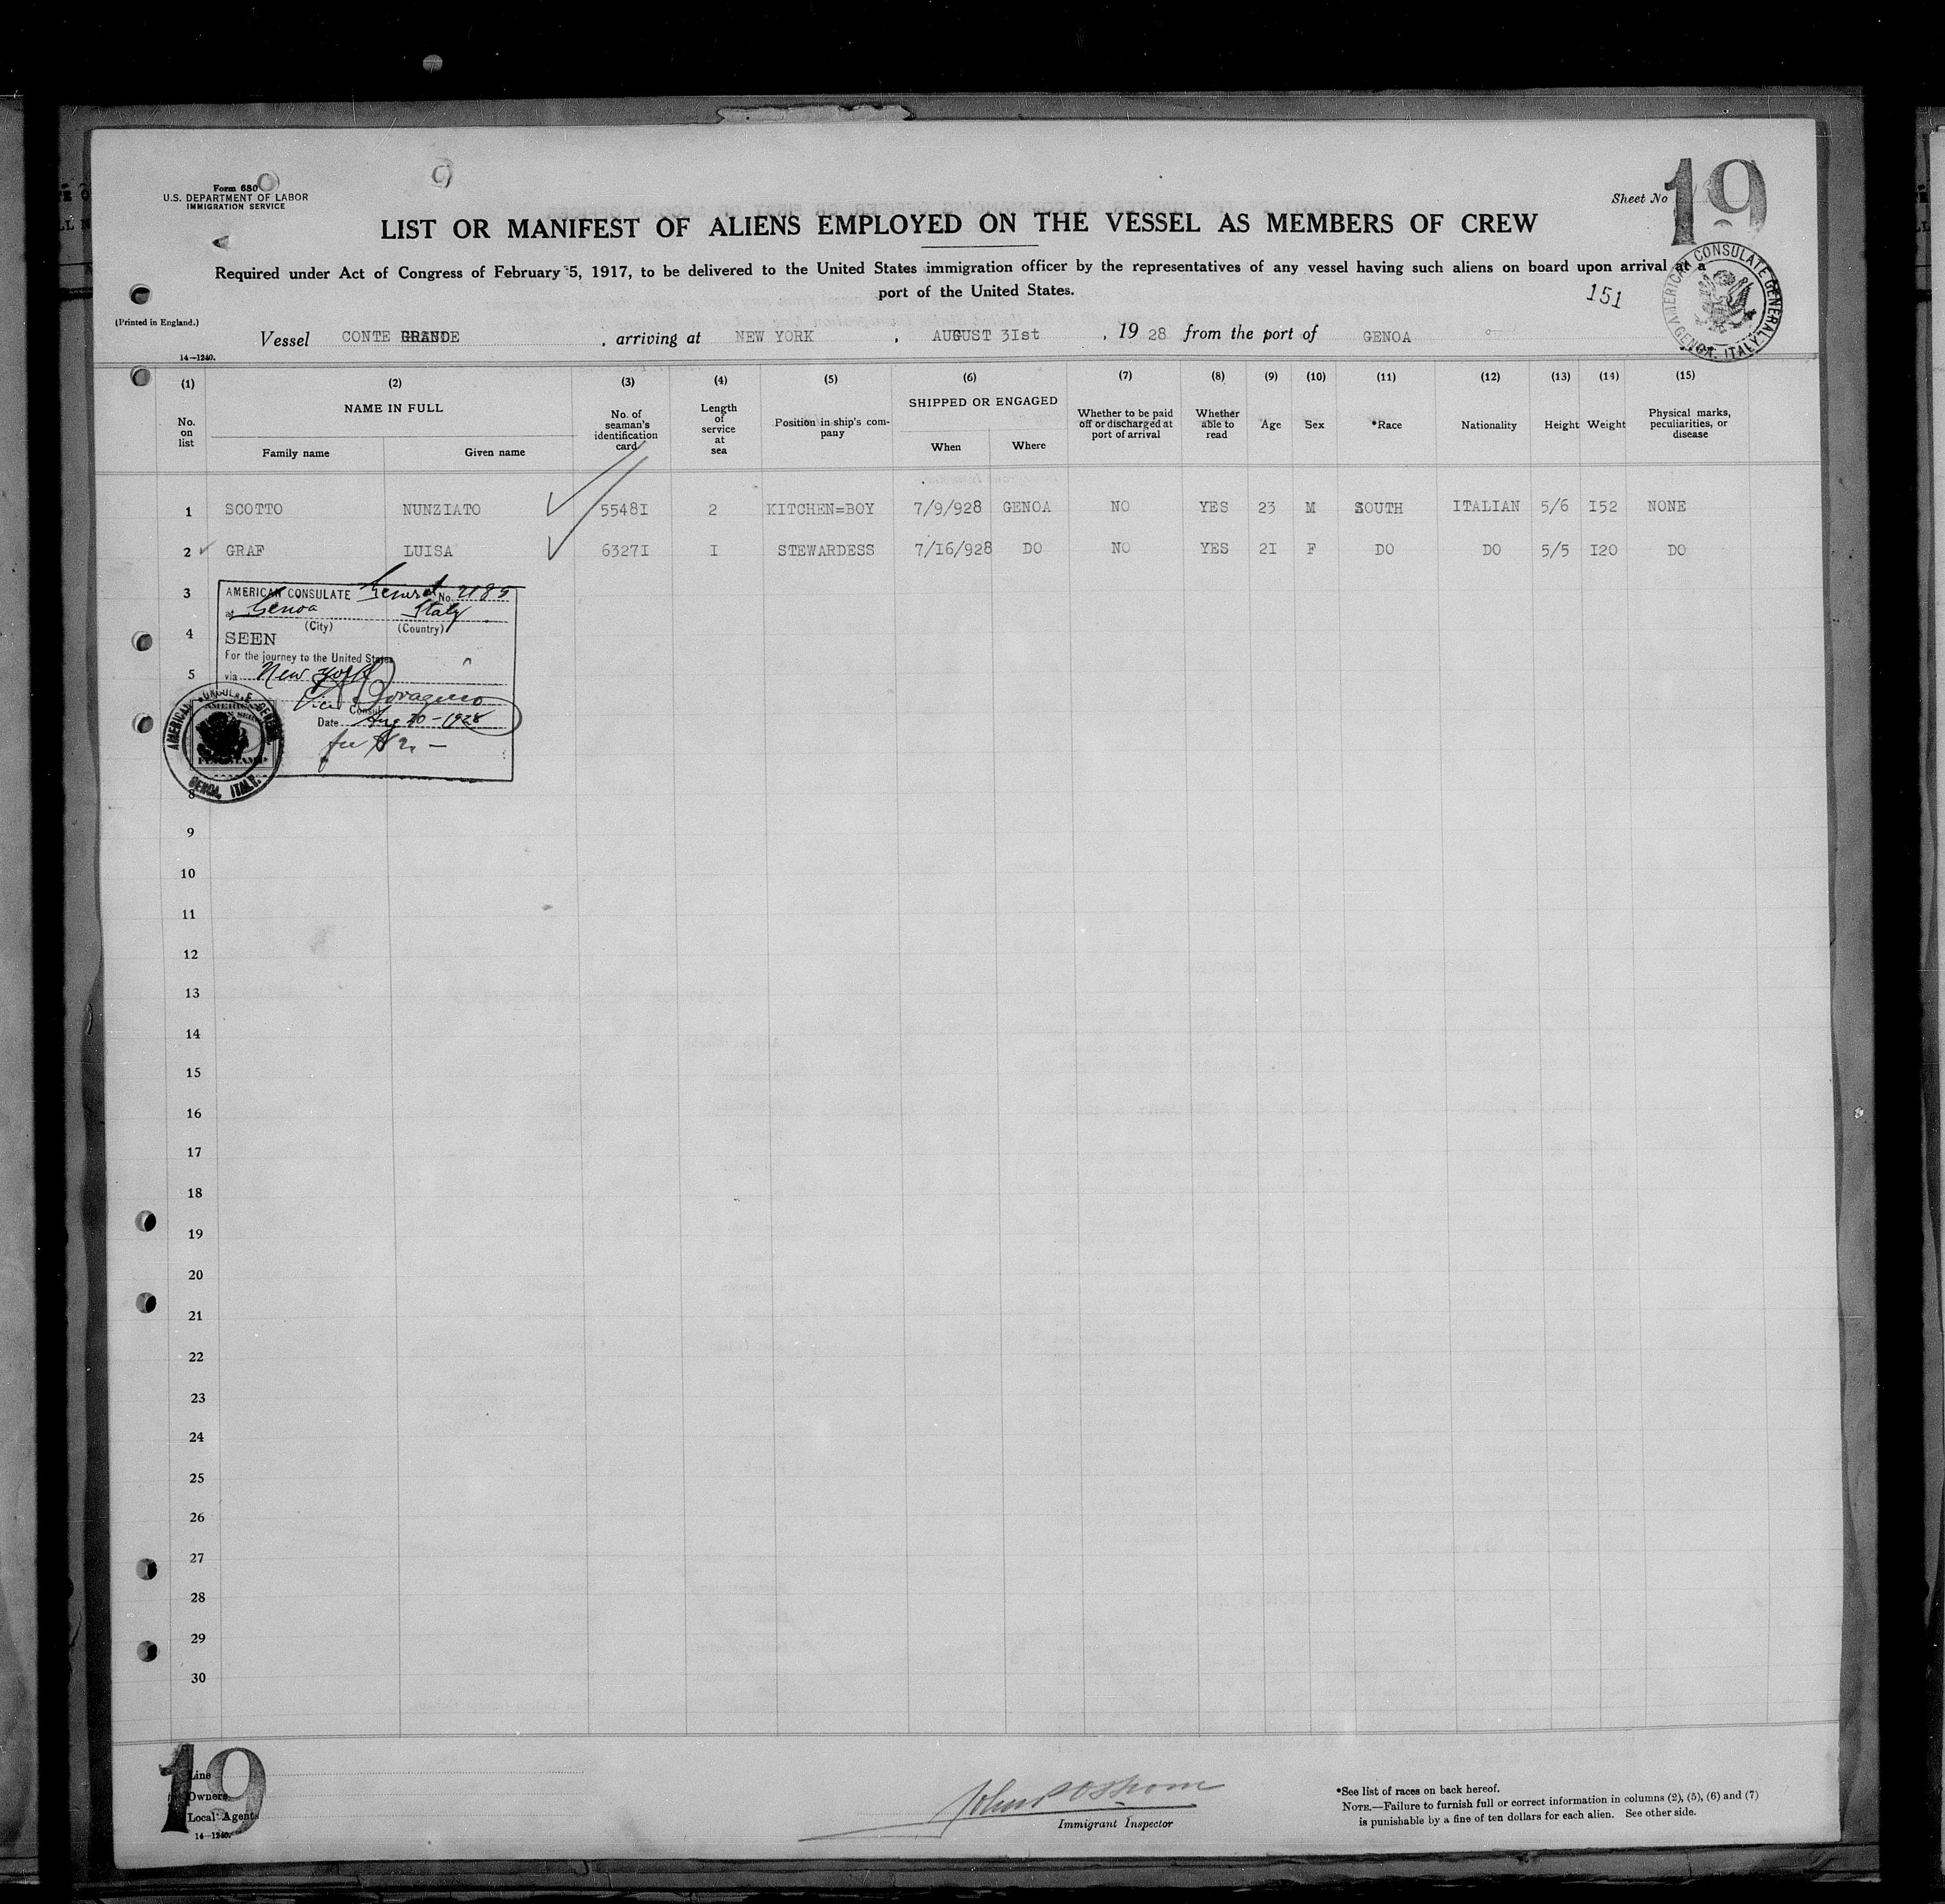 Form 680
U.S. DEPARTMENT OF LABOR
IMMIGRATION SERVICE
Sheet No 19
LIST OR MANIFEST OF ALIENS EMPLOYED ON THE VESSEL AS MEMBERS OF CREW
Required under Act of Congress of February 5, 1917, to be delivered to the United States immigration officer by the representatives of any vessel having such aliens on board upon arrival at a
port of the United States.
151
AMERICAN CONSULATE GENERAL GENOA, ITALY
(Printed in England.)
Vessel CONTE GRANDE, arriving at NEW YORK, AUGUST 3Ist, 19 28 from the port of GENOA
14—1240.
(1) (2) (3) (4) (5) (6) (7) (8) (9) (10) (11) (12) (13) (14) (15)
No. on list NAME IN FULL Family name Given name No. of seaman's identification card Length of service at sea Position in ship's company SHIPPED OR ENGAGED When Where Whether to be paid off or discharged at port of arrival Whether able to read Age Sex *Race Nationality Height Weight Physical marks, peculiarities, or disease
1 SCOTTO NUNZIATO 5548I 2 KITCHEN=BOY 7/9/928 GENOA NO YES 23 M SOUTH ITALIAN 5/6 I52 NONE
2 GRAF LUISA 6327I I STEWARDESS 7/16/928 DO NO YES 2I F DO DO 5/5 I20 DO
3
AMERICAN CONSULATE General No. 2185
at Genoa Italy
(City) (Country)
4
SEEN
For the journey to the United States
5
via New York
Vice Consul
Date Aug 20-1928
fee $2.—
AMERICAN CONSULATE GENERAL GENOA, ITALY.
8
9
10
11
12
13
14
15
16
17
18
19
20
21
22
23
24
25
26
27
28
29
30
19
Line
Owners
Local Agents
14—1240.
John P Osborne
Immigrant Inspector
*See list of races on back hereof.
NOTE.—Failure to furnish full or correct information in columns (2), (5), (6) and (7)
is punishable by a fine of ten dollars for each alien. See other side.